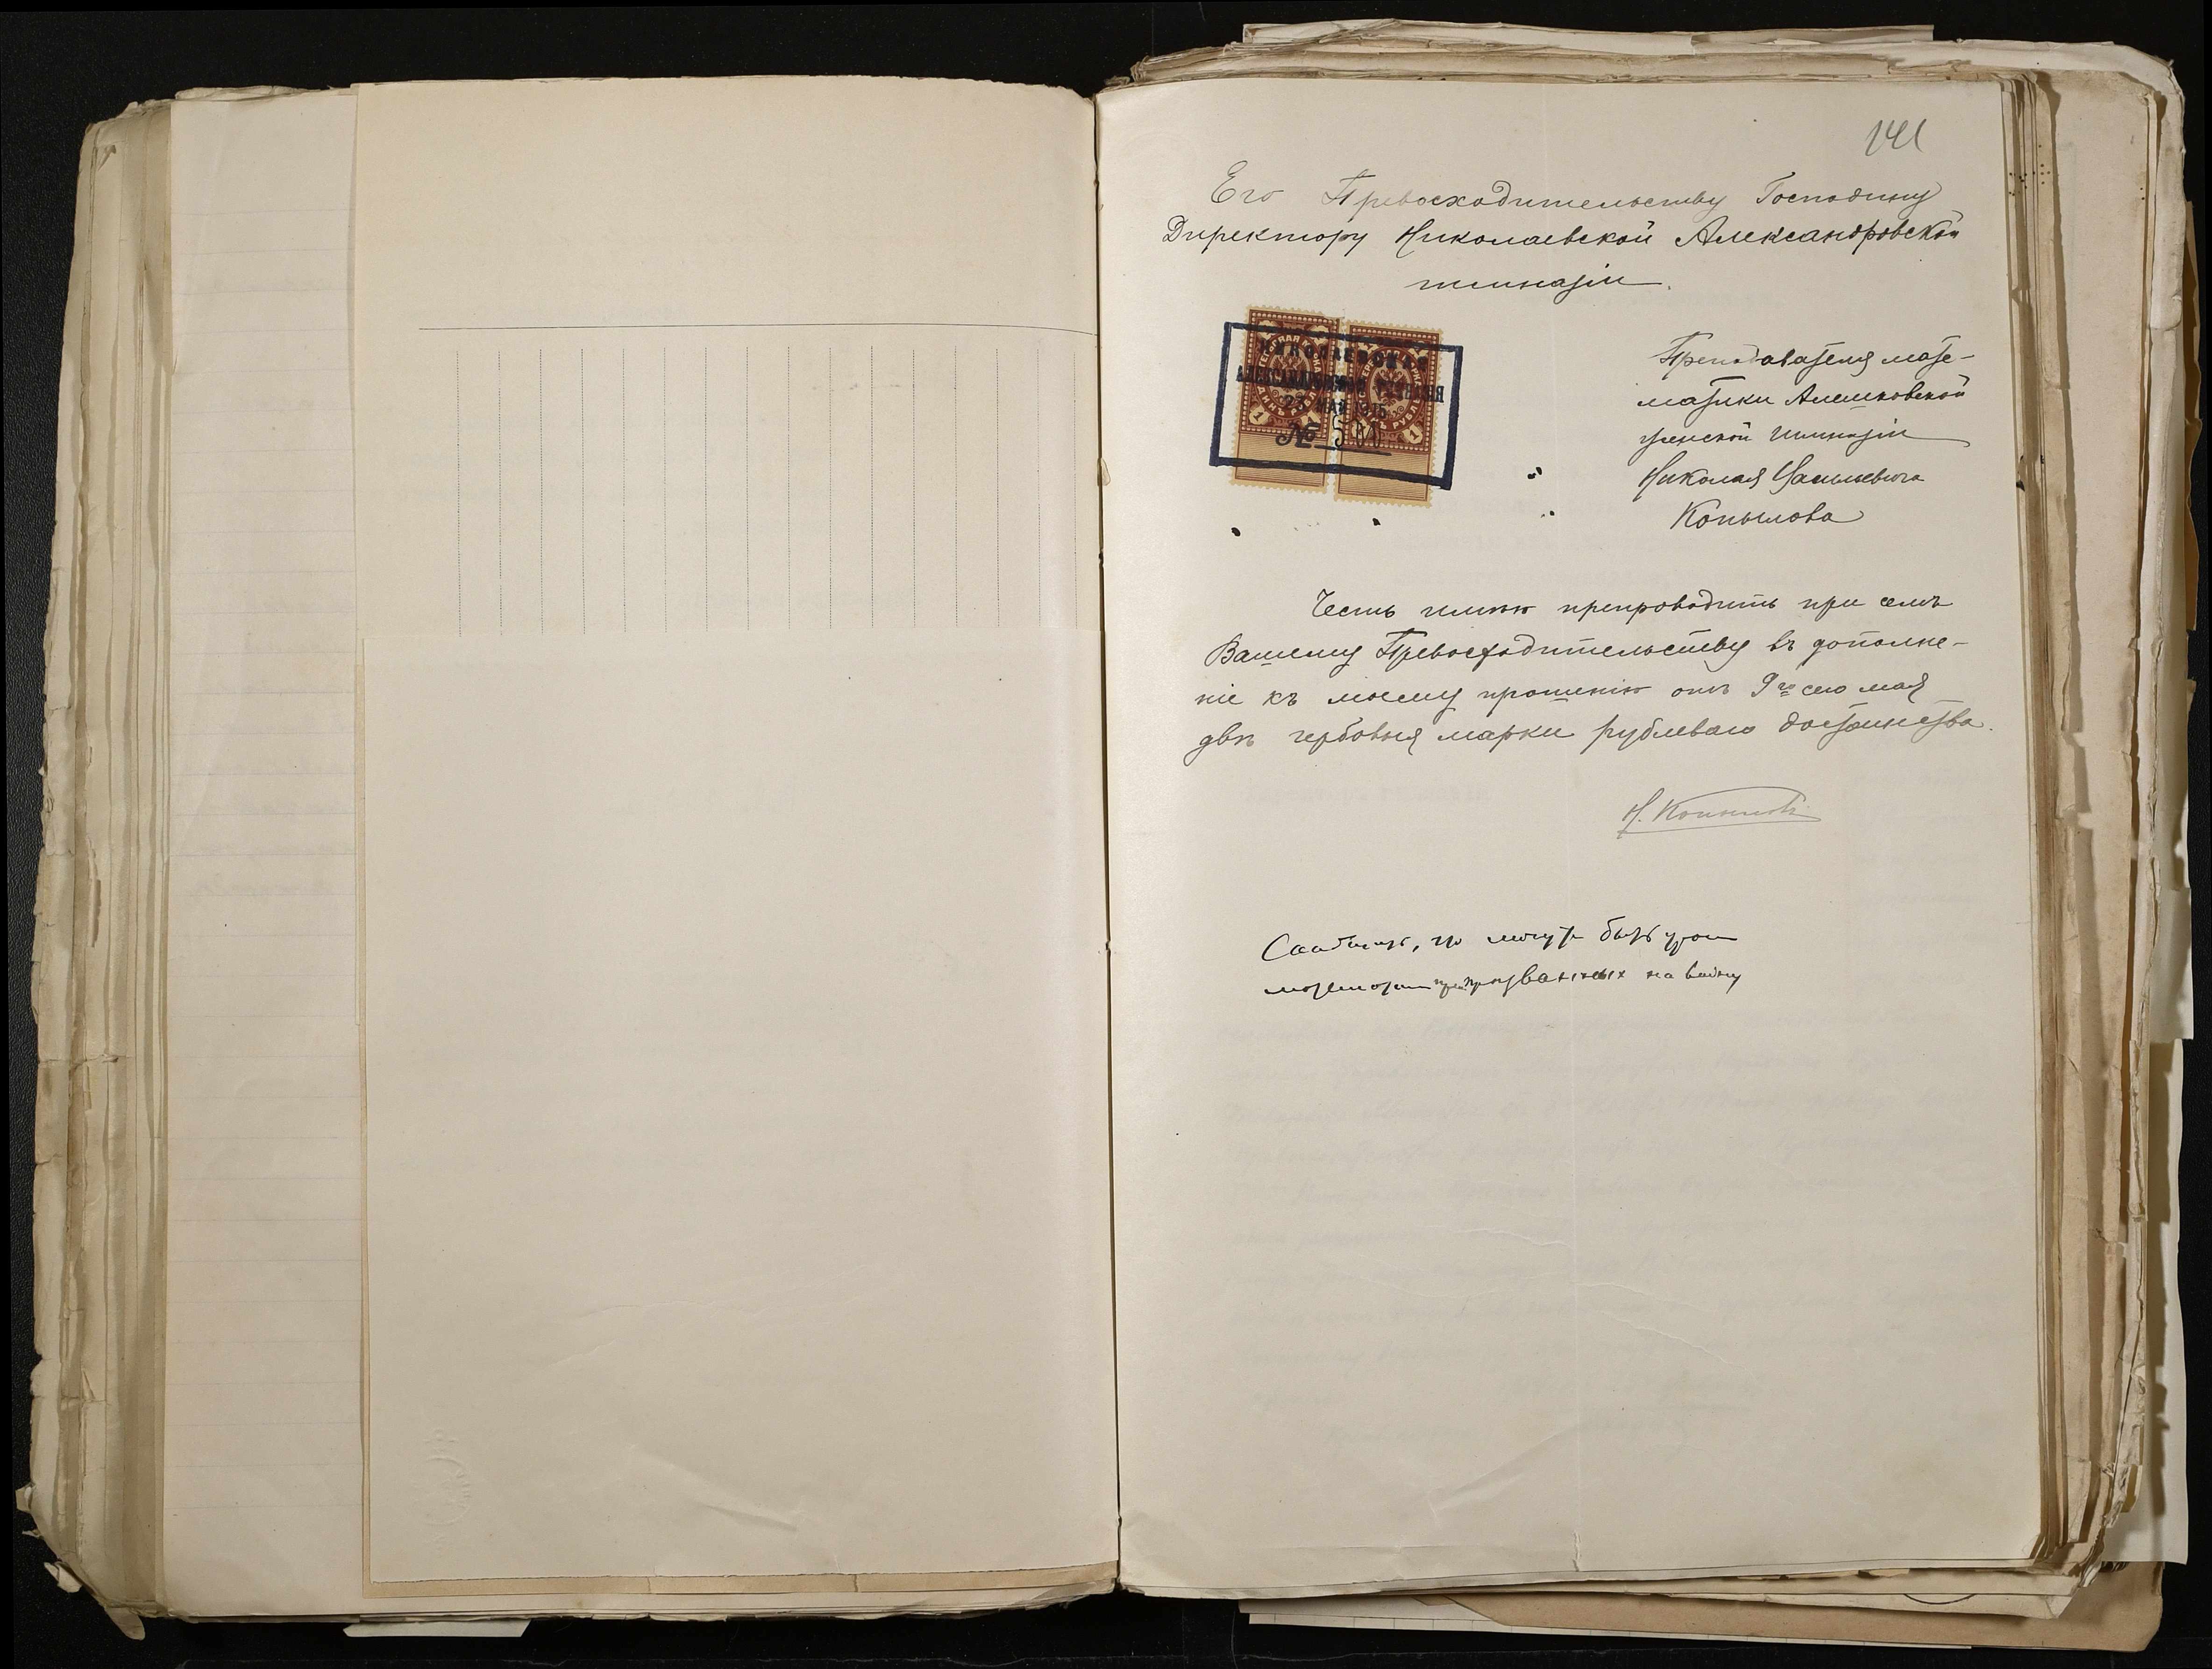 141
Его Превосходительству Господину
Директору Николаевской Александровской
гимназіи.
НИКОЛАЕВСКАЯ
АЛЕКСАНДРОВСКАЯ ГИМНАЗІЯ
МАЯ
№
1 1
Преподавателя мате-
матики Алешковской
женской гимназіи
Николая Васильевича
Копылова
Честь имѣю препроводить при семъ
Вашему Превосходительству въ дополне-
ніе къ моему прошенію отъ 9го сего мая
двѣ гербовыя марки рублеваго достоинства.
Н. Копыловъ
Сообщить, что могутъ быть уроки
математики призванныхъ на войну